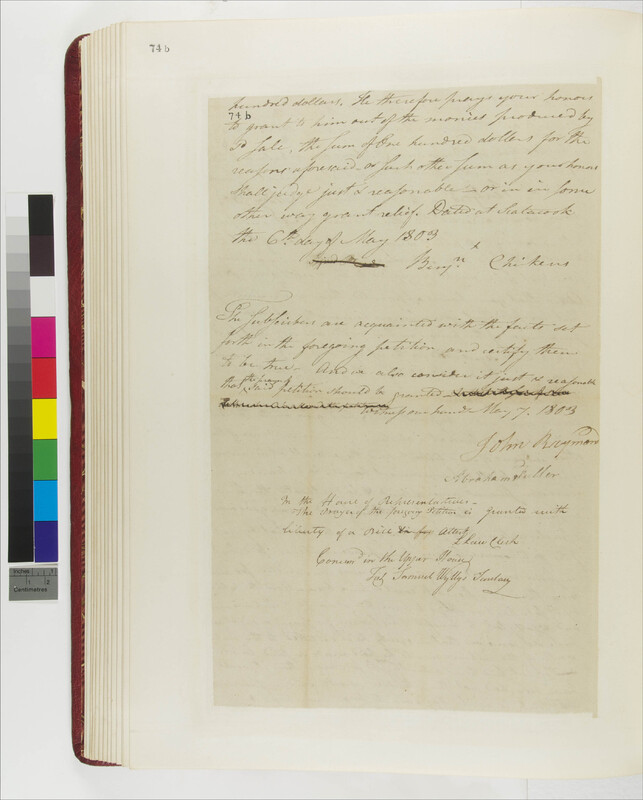 74 b
hundred dollars. He therefore prays your honors
74 b
to grant to him out of the monies produced by
sd Sale, the sum of One hundred dollars for the
reasons aforesaid or such other sum as your honors
shall judge just & reasonable – or in in some
other way grant relief. Dated at Scatacook
the 6th day of May 1803
Benjn x Chikens
The Subscribers are acquainted with the facts set
forth in the foregoing petition and certify them
to be true. And we also consider it just & reasonable
that the prayer of said petition should be granted
Witness our hands May 7. 1803
John Raymond
Abraham Fuller
In the House of Representatives –
The Prayer of the foregoing Petition is granted with
liberty of a Bill Attest
Clerk
Concurd in the Upper House
Test Samuel Wyllys Secretary
Inches 1 2
Centimetres